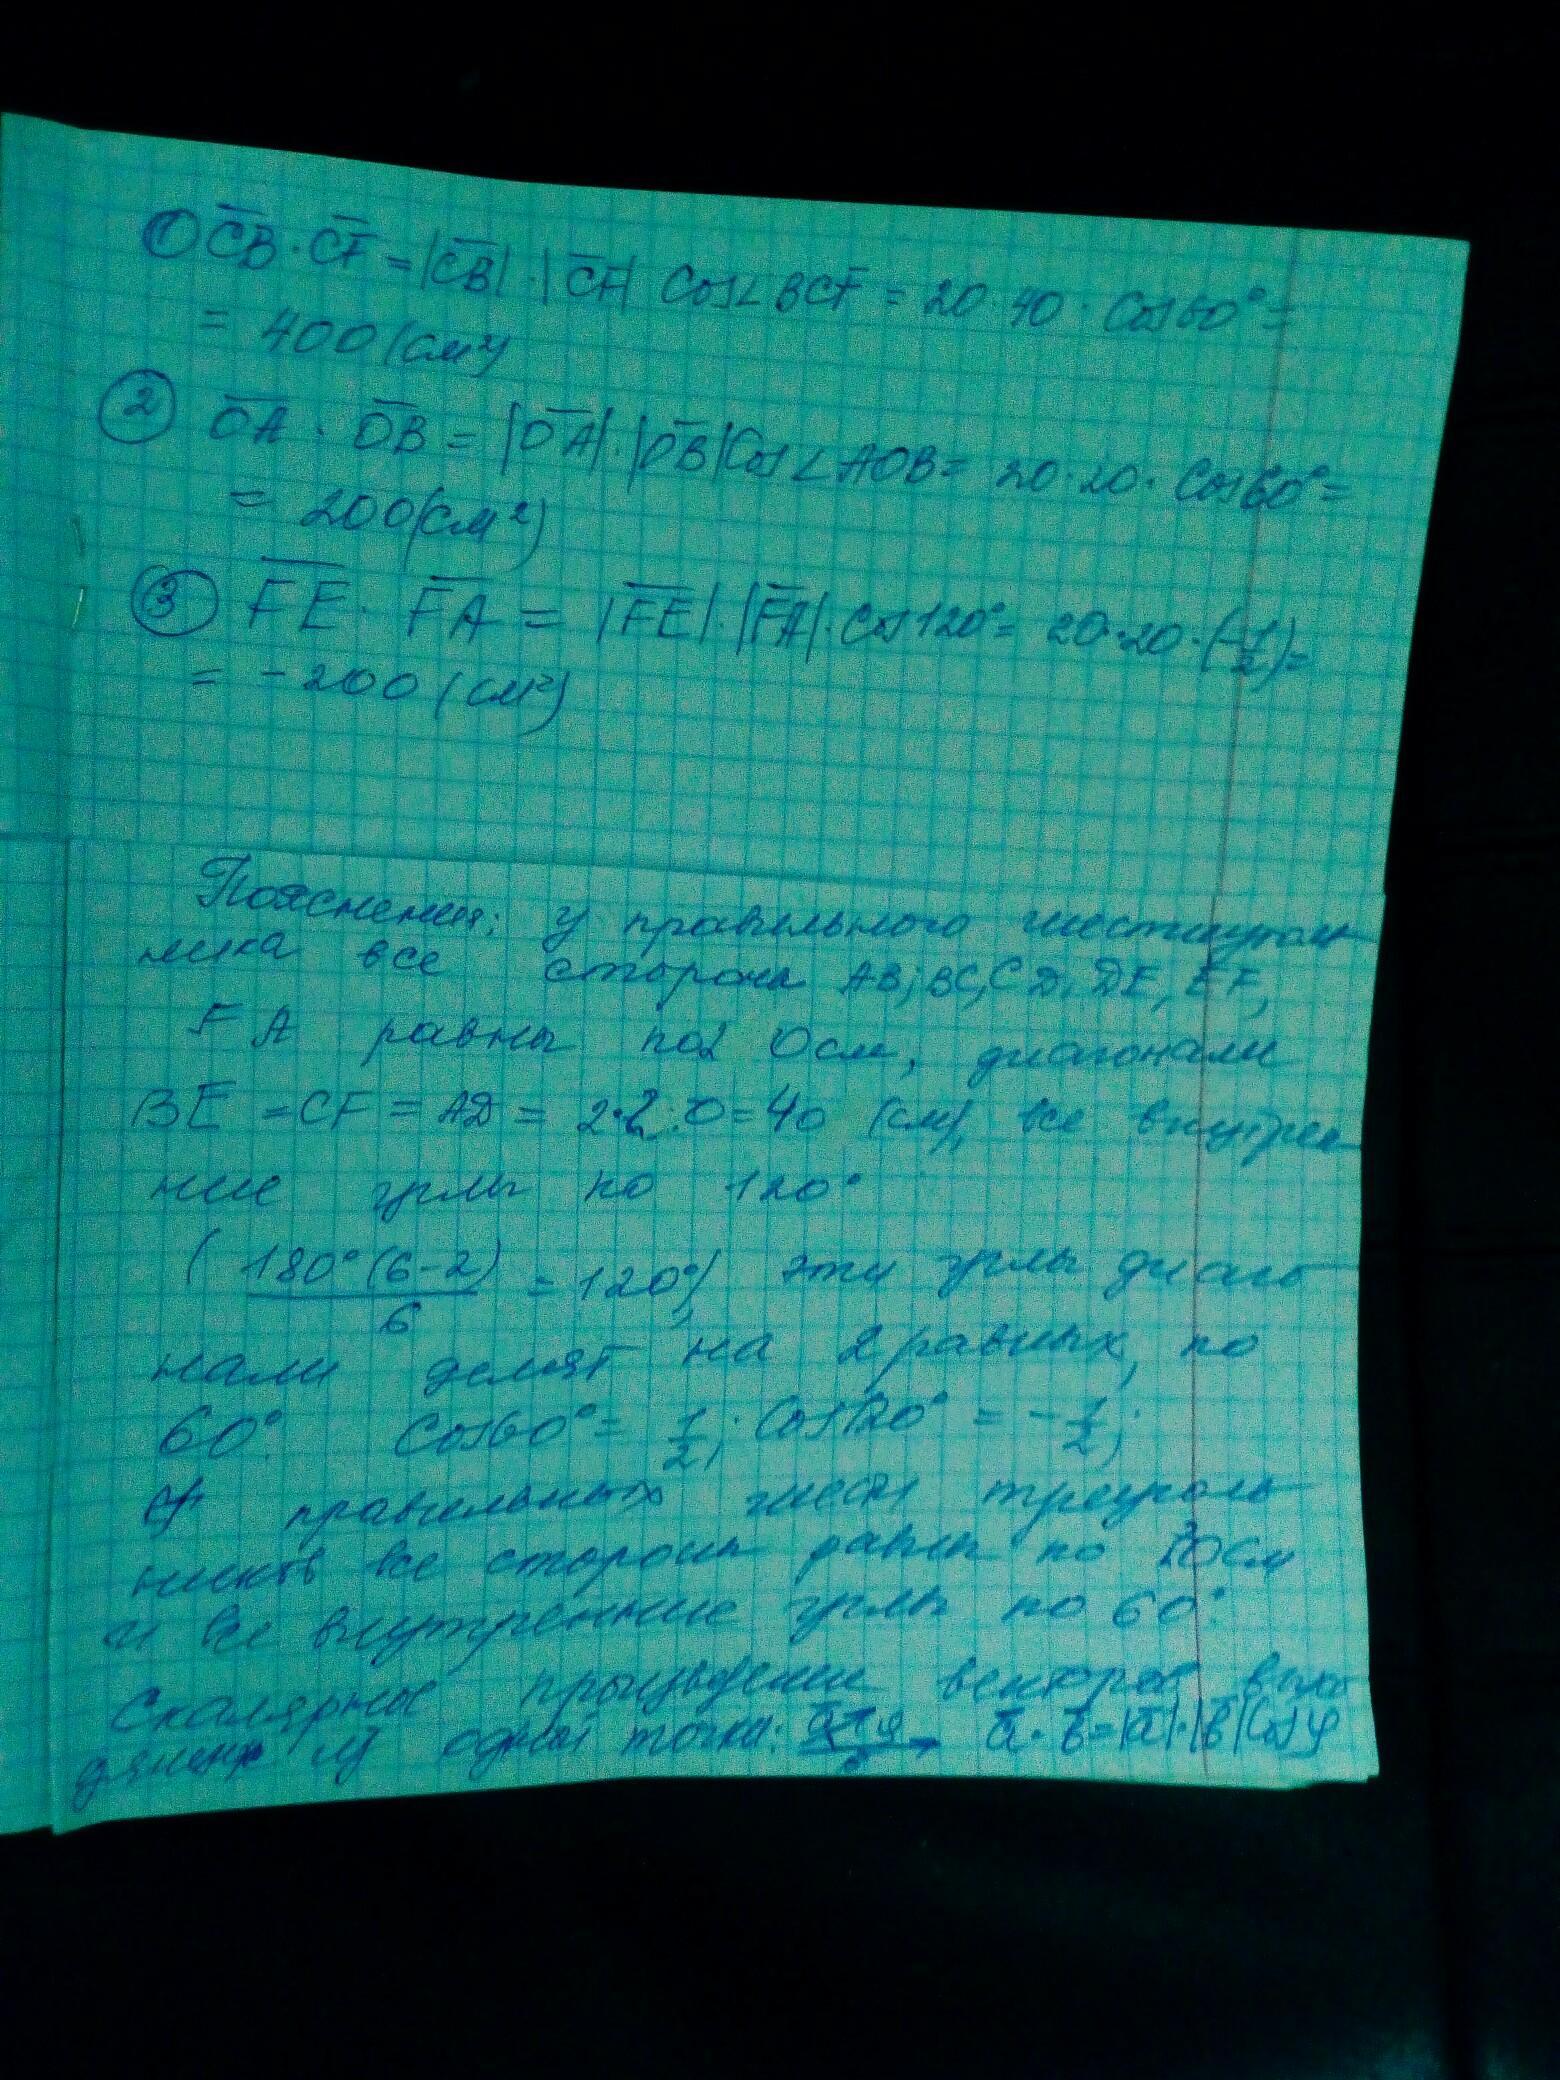 ① C̅B̅ · C̅F̅ = |C̅B̅| · |C̅F̅| Cos∠BCF = 20·40 · Cos60° =
= 400 (см²)
② O̅A̅ · O̅B̅ = |O̅A̅| · |O̅B̅| Cos∠AOB = 20·20· Cos60° =
= 200 (см²)
③ F̅E̅ · F̅A̅ = |F̅E̅| · |F̅A̅| · Cos120° = 20·20·(-1/2) =
= -200 (см²)
Пояснения: у правильного шестиуголь
ника все стороны AB; BC, CD, DE, EF,
FA равны по 20см, диагонали
BE = CF = AD = 2·20 = 40 (см), все внутрен
ние углы по 120°
(180°(6-2)/6 = 120°) эти углы диаго
нали делят на 2 равных, по
60°. Cos60° = 1/2; Cos120° = -1/2;
У правильных шести треуголь
ников все стороны равны по 20см
и все внутренние углы по 60°.
Скалярное произведение векторов выхо
дящих из одной точки: a̅ · b̅ = |a̅| · |b̅| Cos φ